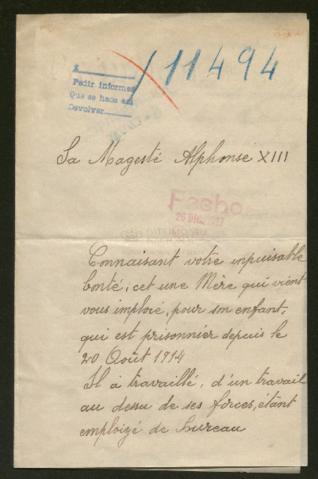 11494
A
Pedir informes
Que se hace asi
Devolver
Sa Magesté Alphonse XIII
Fecho
26 DIC. 917
Connaisant votre inpuisable
bonté, cet une Mère qui vient
vous imploré, pour son enfant,
qui est prisonnier depuis le
20 Août 1914
Il a travaillé, d'un travail
au dessu de ses forces, étant
emploizé de bureau